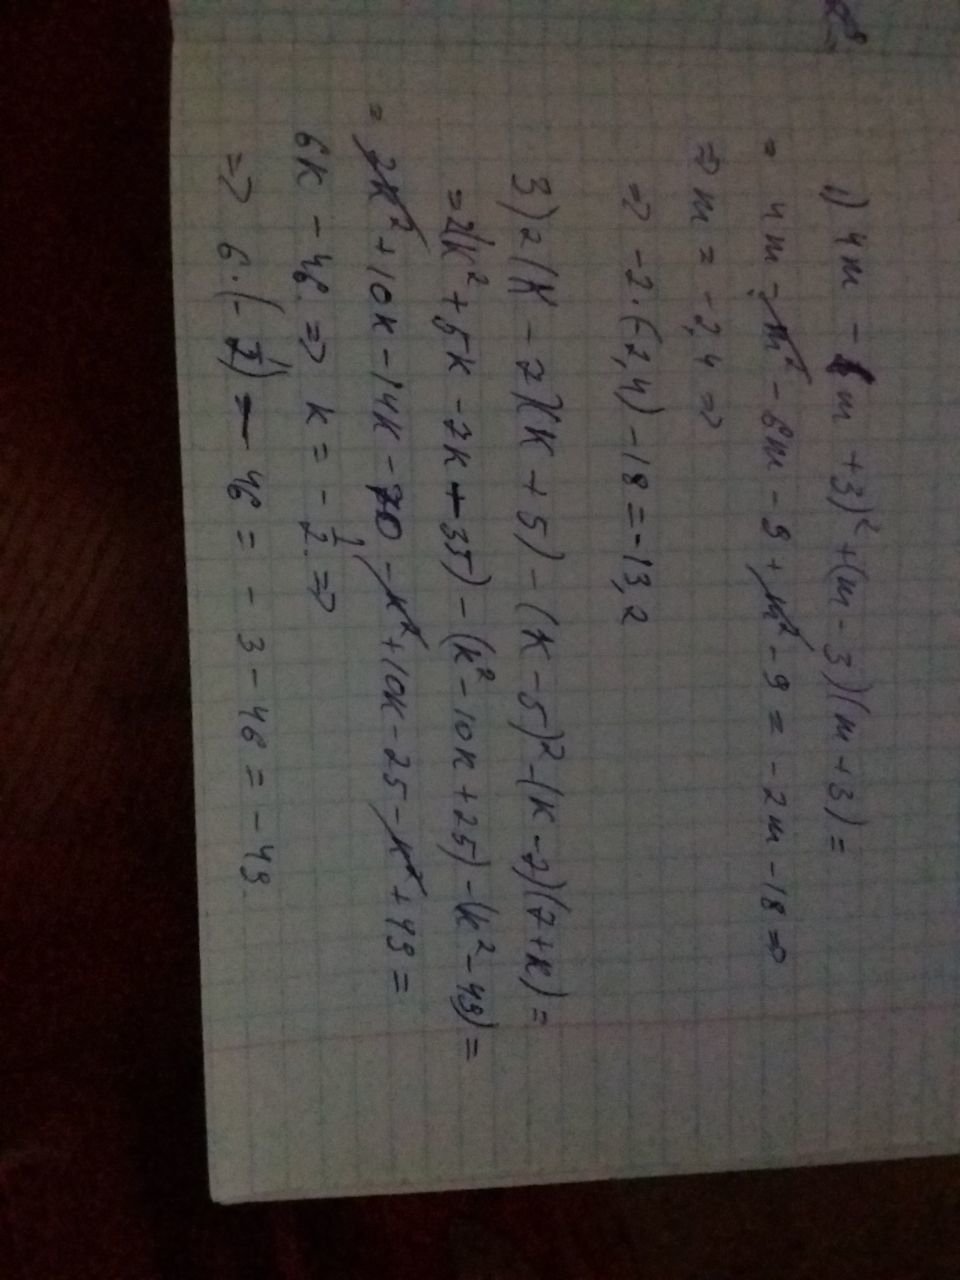 1) 4m - (m + 3)² + (m - 3)(m + 3) =
= 4m - m² - 6m - 9 + m² - 9 = - 2m - 18 ⇒
⇒ m = - 2,4 ⇒
⇒ - 2 · (-2,4) - 18 = - 13,2
3) 2 (k - 7)(k + 5) - (k - 5)² - (k - 7)(7 + k) =
= 2(k² + 5k - 7k - 35) - (k² - 10k + 25) - (k² - 49) =
= 2k² + 10k - 14k - 70 - k² + 10k - 25 - k² + 49 =
6k - 46 ⇒ k = - 1/2 ⇒
⇒ 6 · (- 1/2) - 46 = - 3 - 46 = - 49.